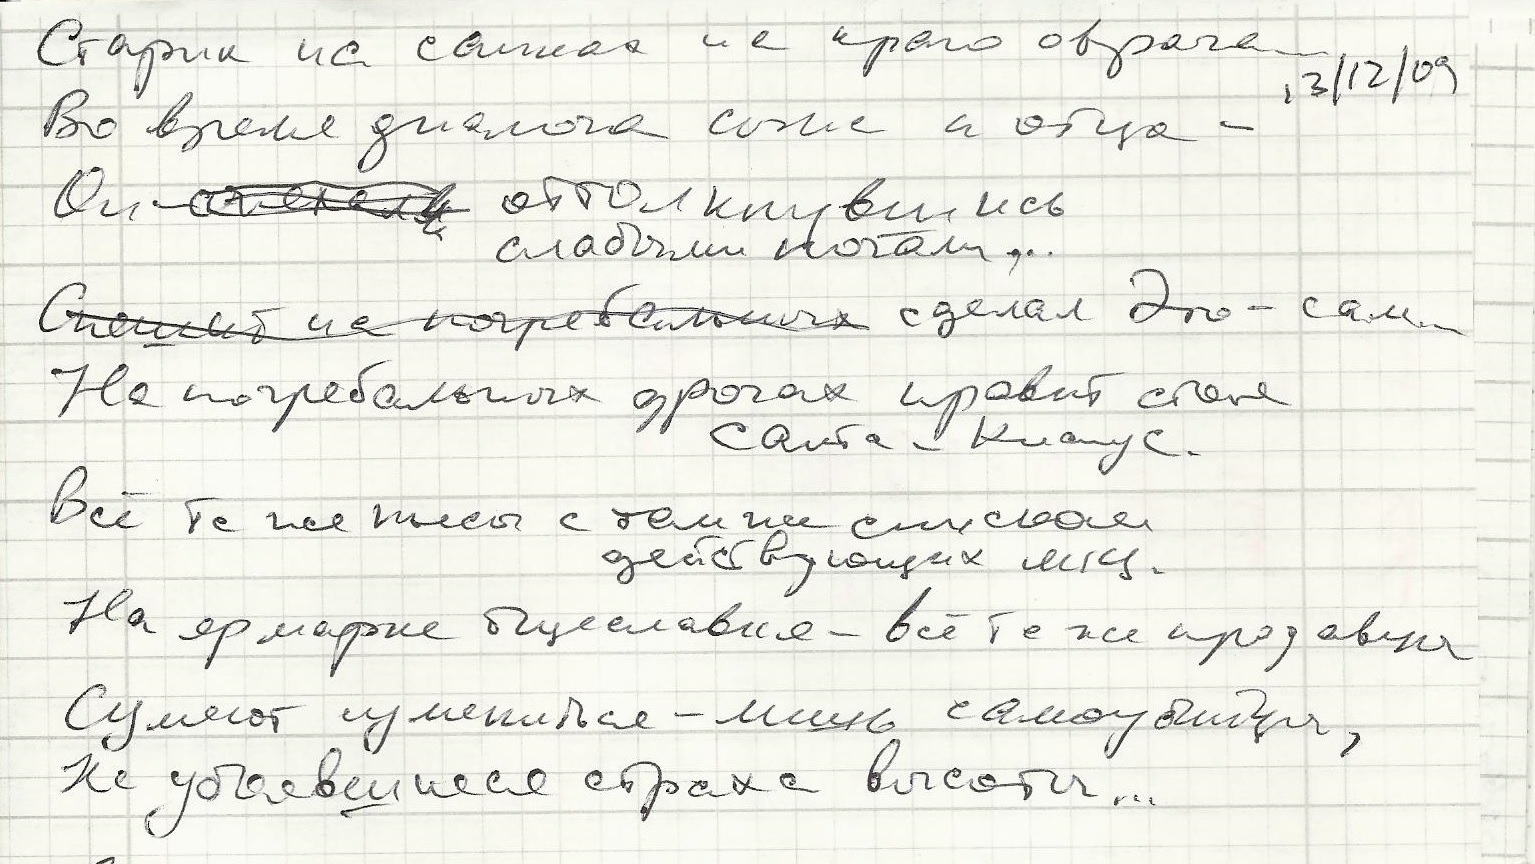 Старик на санках на краю оврага
13/12/09
Во время диалога сына и отца –
Он оттолкнувшись
слабыми ногами,..
Спешит на погребальных сделал Это – сам..
На погребальных дрогах правит стоя
Санта – Клаус.
Всё те же пьесы с тем же списком
действующих лиц.
На ярмарке тщеславия – всё те же продавцы
Сумеют измениться – лишь самоубийцы,
Не убоявшиеся страха высоты...